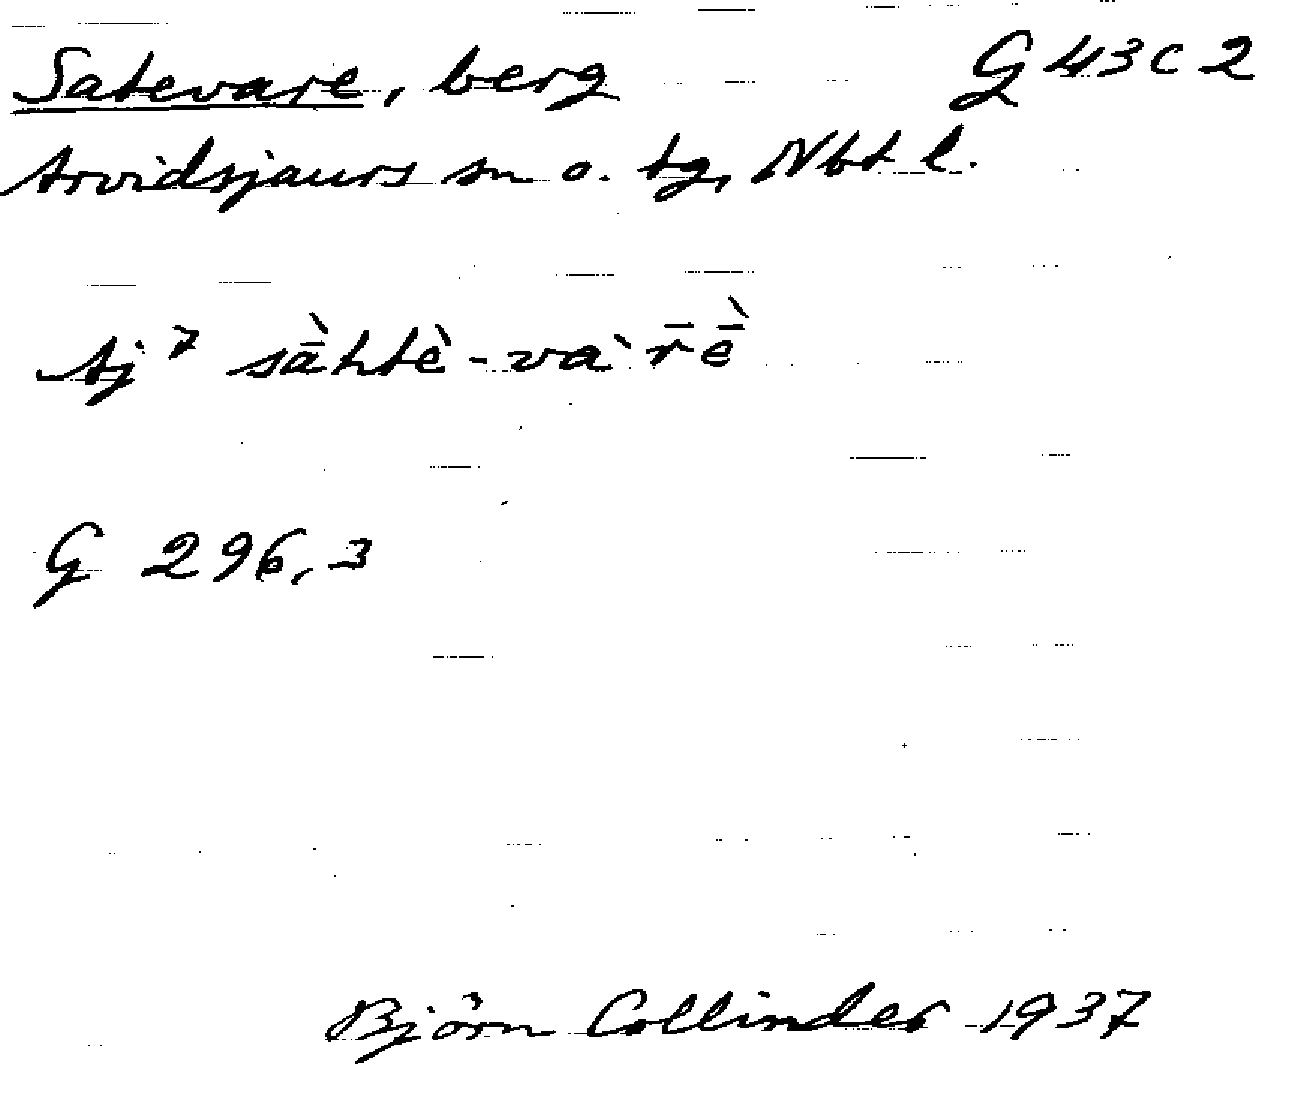 Satevare, berg G 43 C 2
Arvidsjaurs sn o. tg, Nbt l.
Aj⁷ sā̀htè-vàr̄ḕ
G 296,3
Björn Collinder 1937